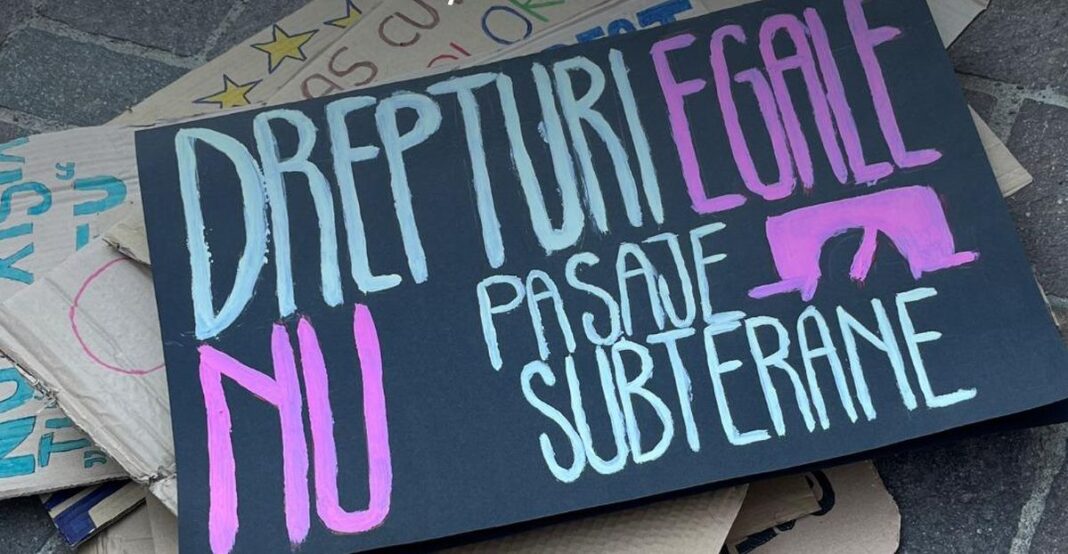 AS CU
DREPTURI EGALE
NU PASAJE
SUBTERANE